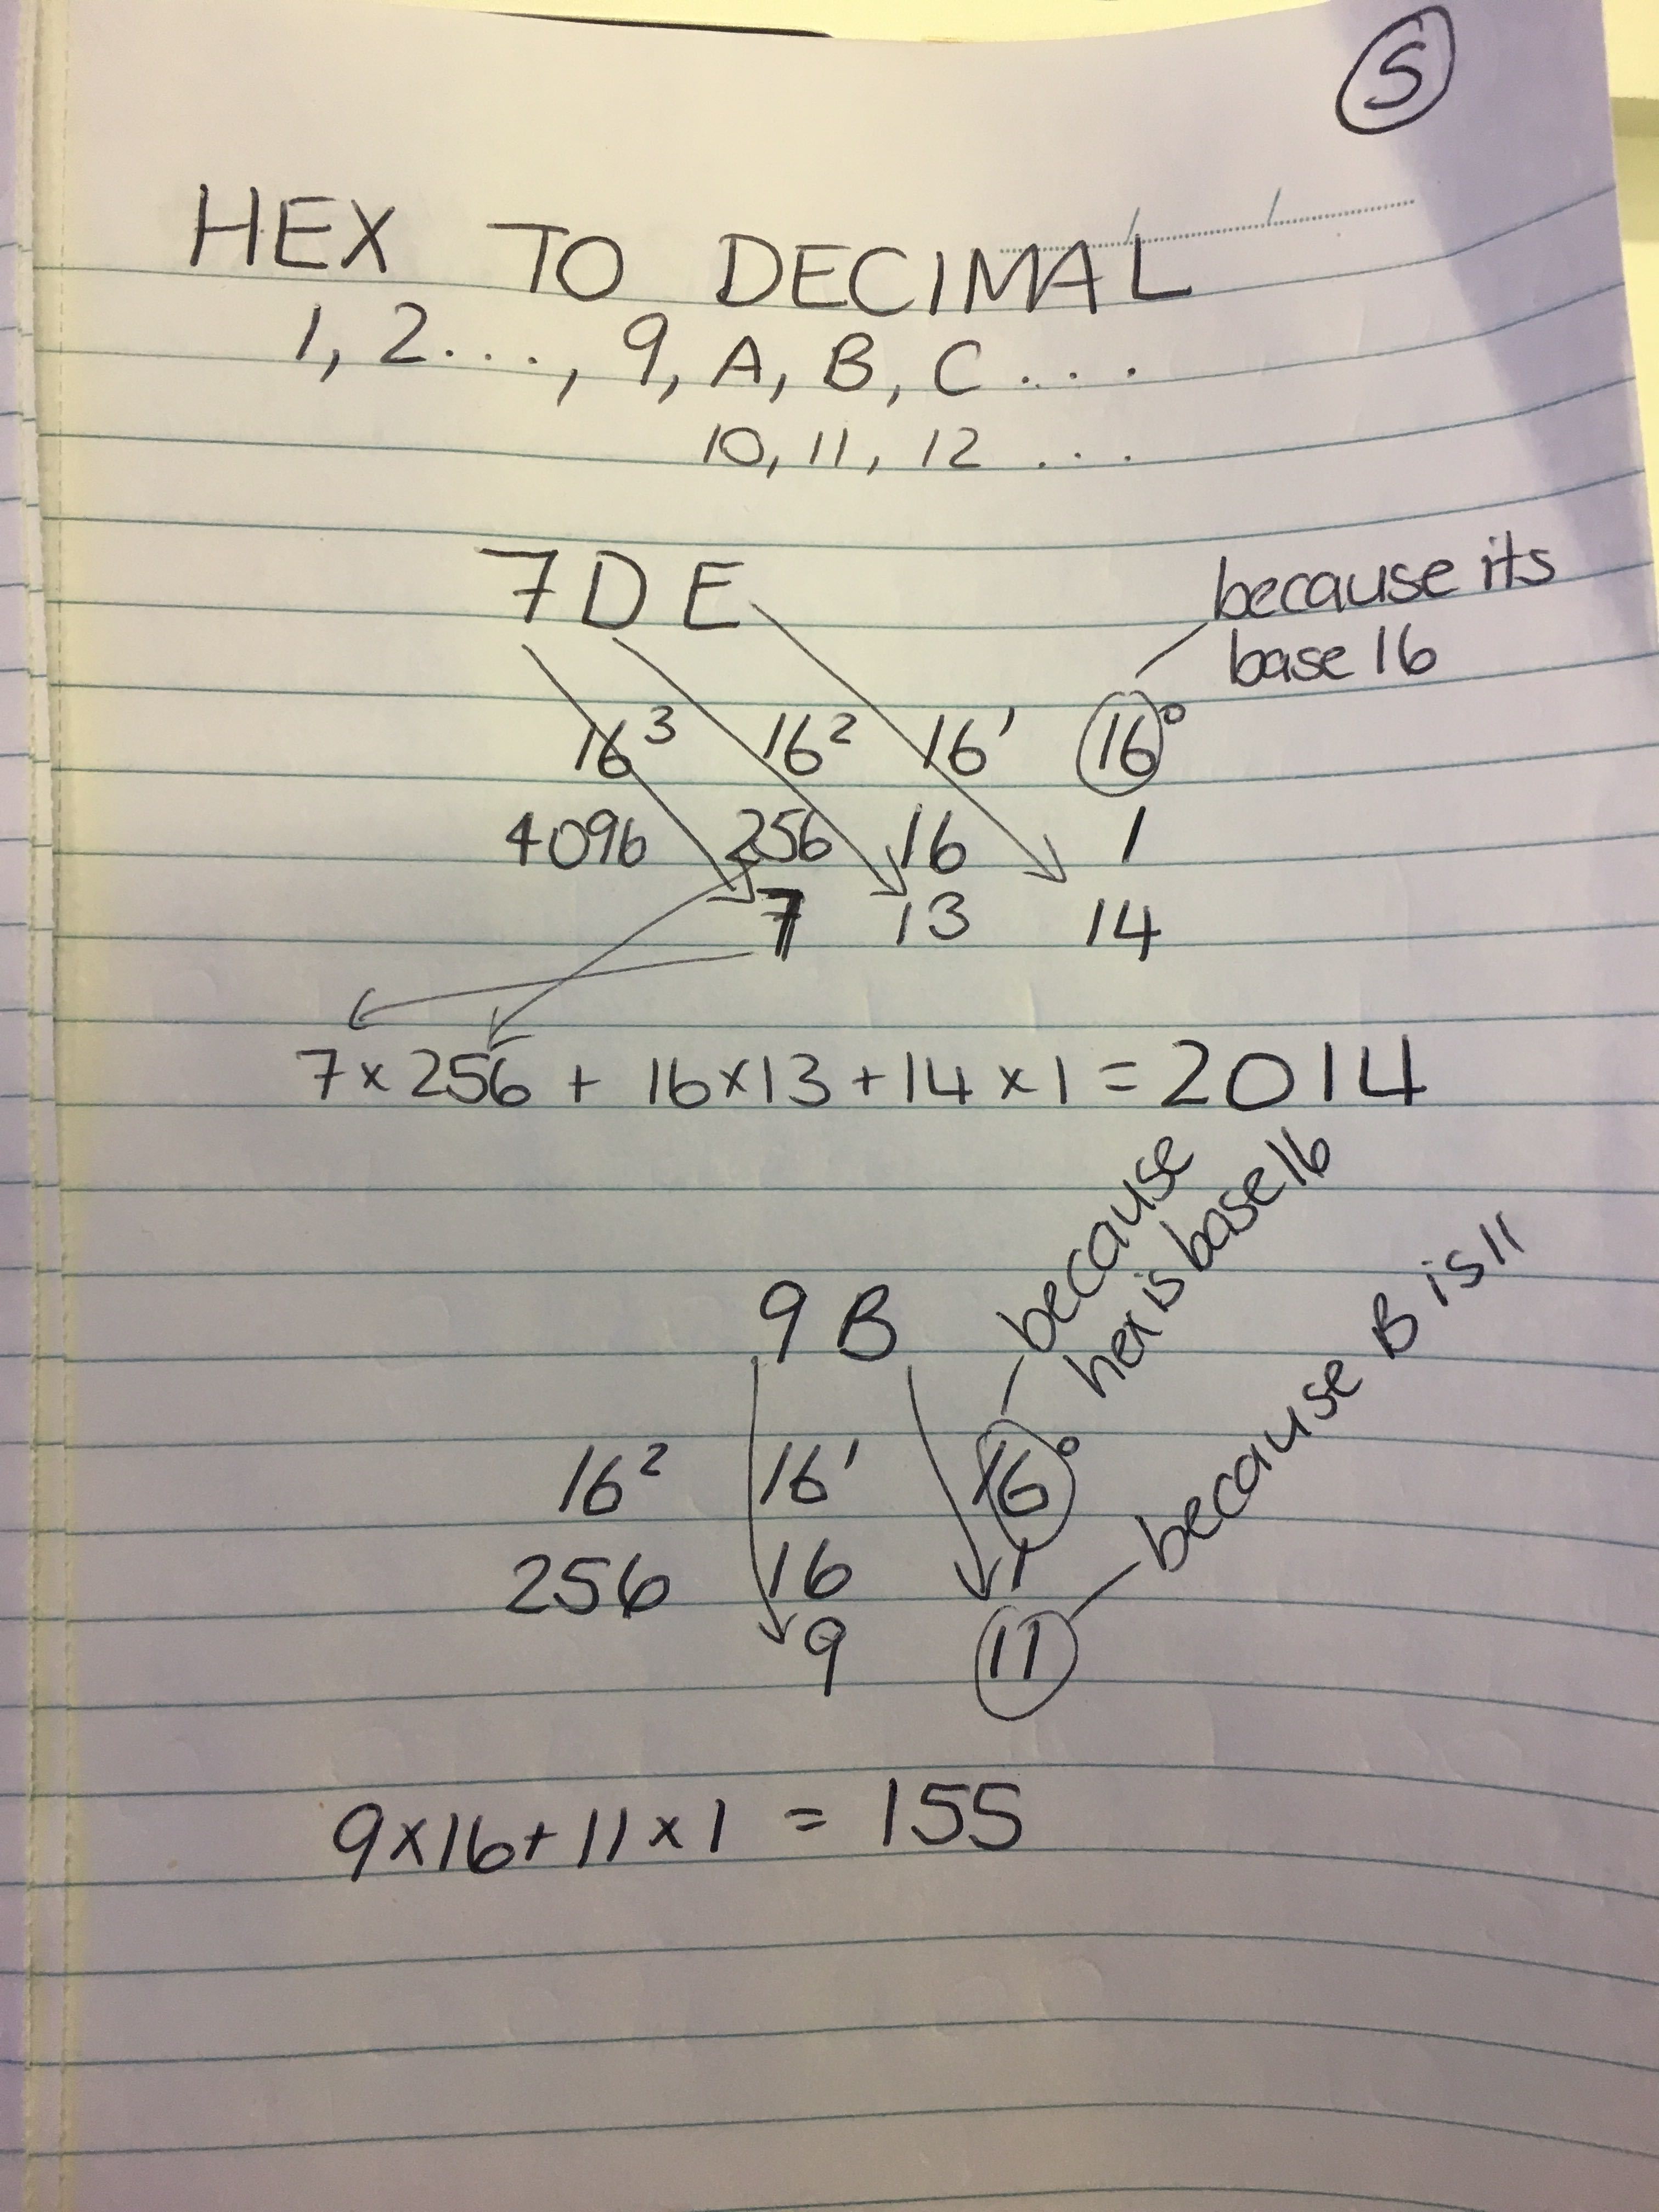 5
HEX TO DECIMAL
1, 2..., 9, A, B, C...
10, 11, 12 ...
7 D E
because its
base 16
16³ 16² 16¹ 16⁰
4096 256 16 1
7 13 14
7 x 256 + 16 x 13 + 14 x 1 = 2014
because
hex is base 16
9 B
because B is 11
16² 16¹ 16⁰
256 16 1
9 11
9 x 16 + 11 x 1 = 155